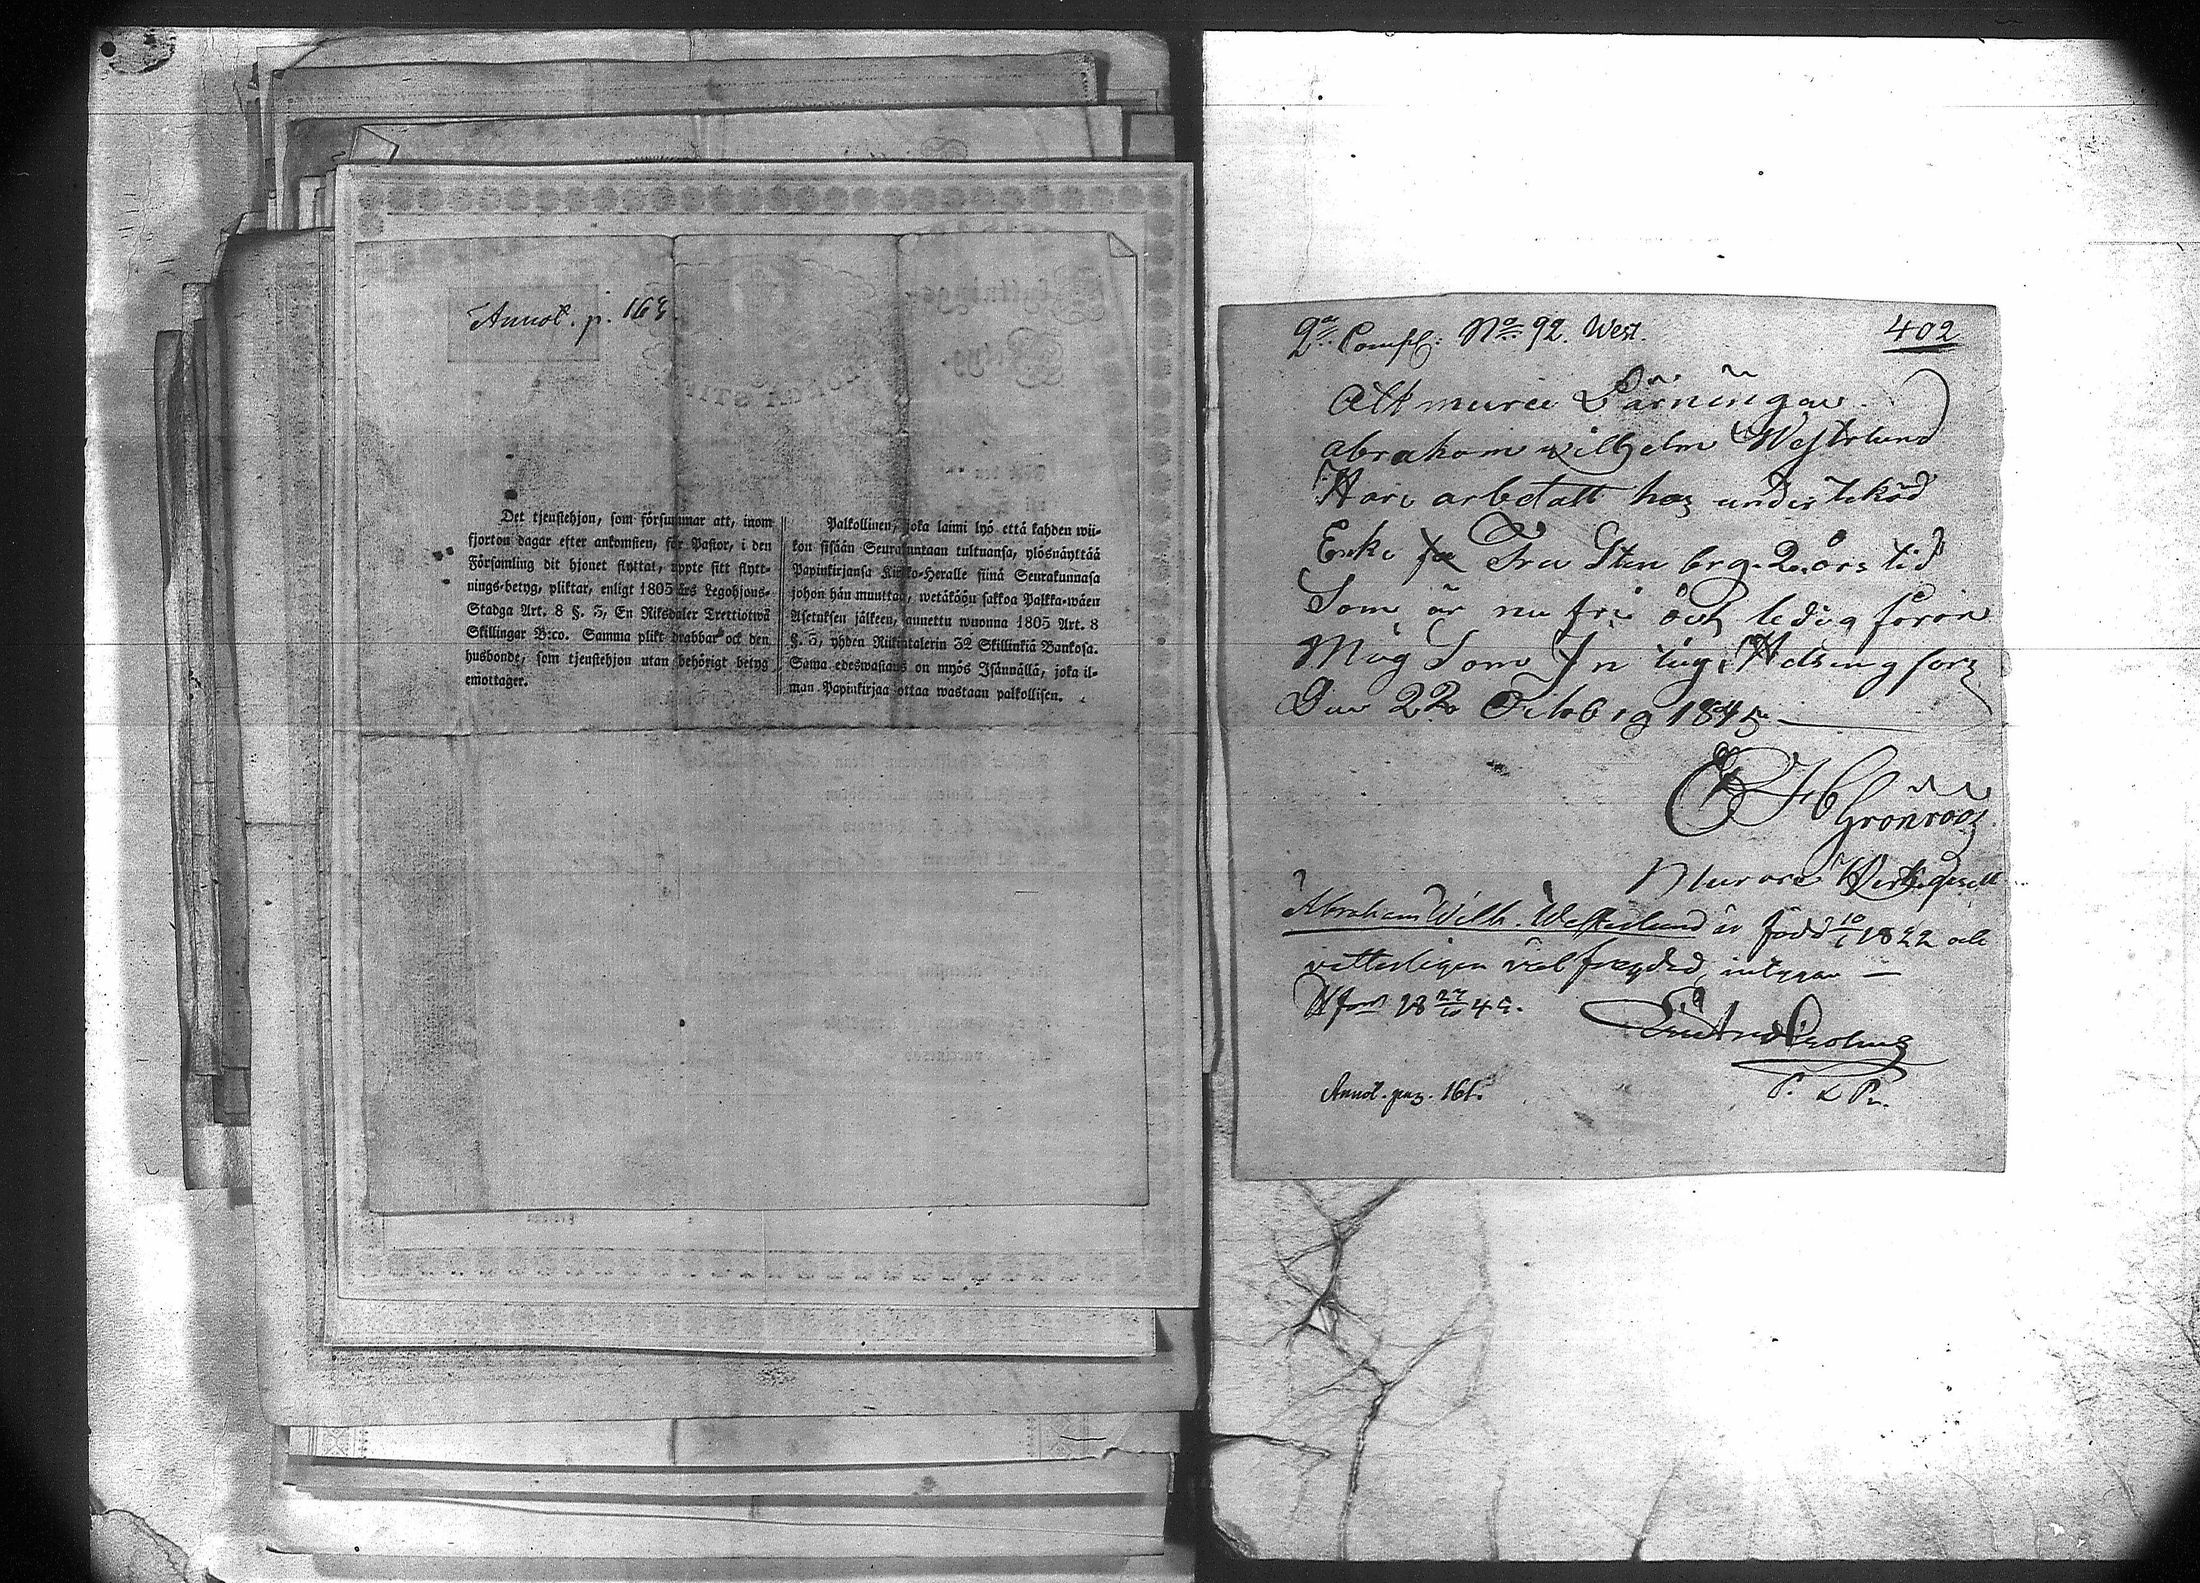 Annot. p. 163.
Det tjenstehjon, som försummar att, inom
fjorton dagar efter ankomsten, för Pastor, i den
Församling dit hjonet flyttat, uppte sitt flytt-
nings-betyg, pliktar, enligt 1805 års Legohjons-
Stadga Art. 8 §. 5, En Riksdaler Trettiotwå
Skillingar B:co. Samma plikt drabbar ock den
husbonde, som tjenstehjon utan behörigt betyg
emottager.
Palkollinen, joka laimi lyö että kahden wii-
kon sisään Seurakuntaan tultuansa, ylösnäyttää
Papinkirjansa Kirkko-Herralle siinä Seurakunnasa
johon hän muuttaa, wetäköön sakkoa Palkka-wäen
Asetuksen jälkeen, annettu wuonna 1805 Art. 8
§. 5, yhden Riikintalerin 32 Skillinkiä Bankosa.
Sama edeswastaus on myös Isännällä, joka il-
man Papinkirjaa ottaa wastaan palkollisen.
Compl: No 92. West.
402
Att murare Lärningen
abraham wilhelm Westrlund
Har arbetatt hos undertekad
Enke Fru Sten brg. 2 års tid
Som är nu fri och ledig för
Mig Som In tüg. Helsingfors
Den 22 October 1845
Grönroos
Murare Verkgesell
Abraham Wilh. Westerlund är född 10/1 1822 och
vetterligen väl frejdad, intygar —
Hfors 18 27/10 45.
Annot. pag. 161.
P. L. Pr.